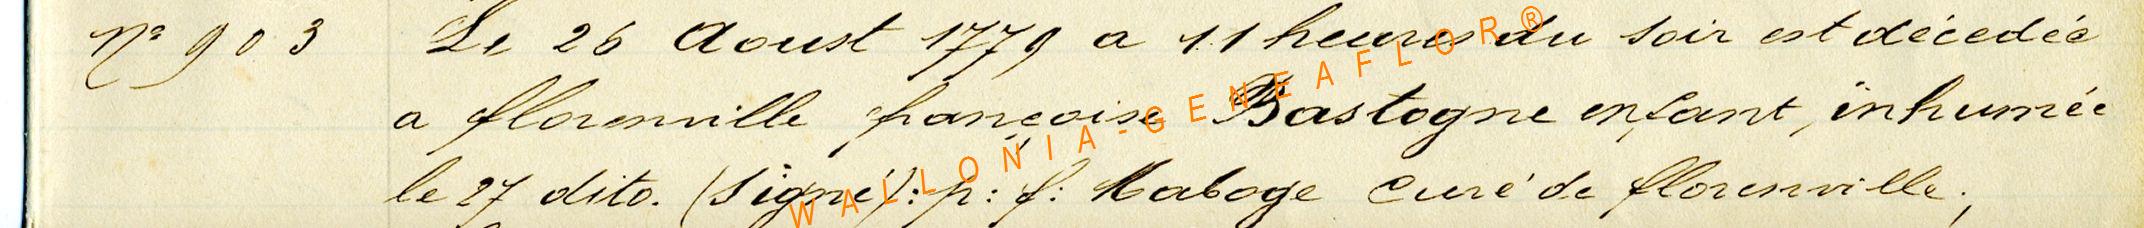 N° 903 Le 26 Aoust 1779 a 11 heures du soir est décedée
a florenville françoise Bastogne enfant, inhumée
le 27 dito. (Signé): p: f: Maboge Curé de florenville,
WALLONIA-GENEAFLOR®